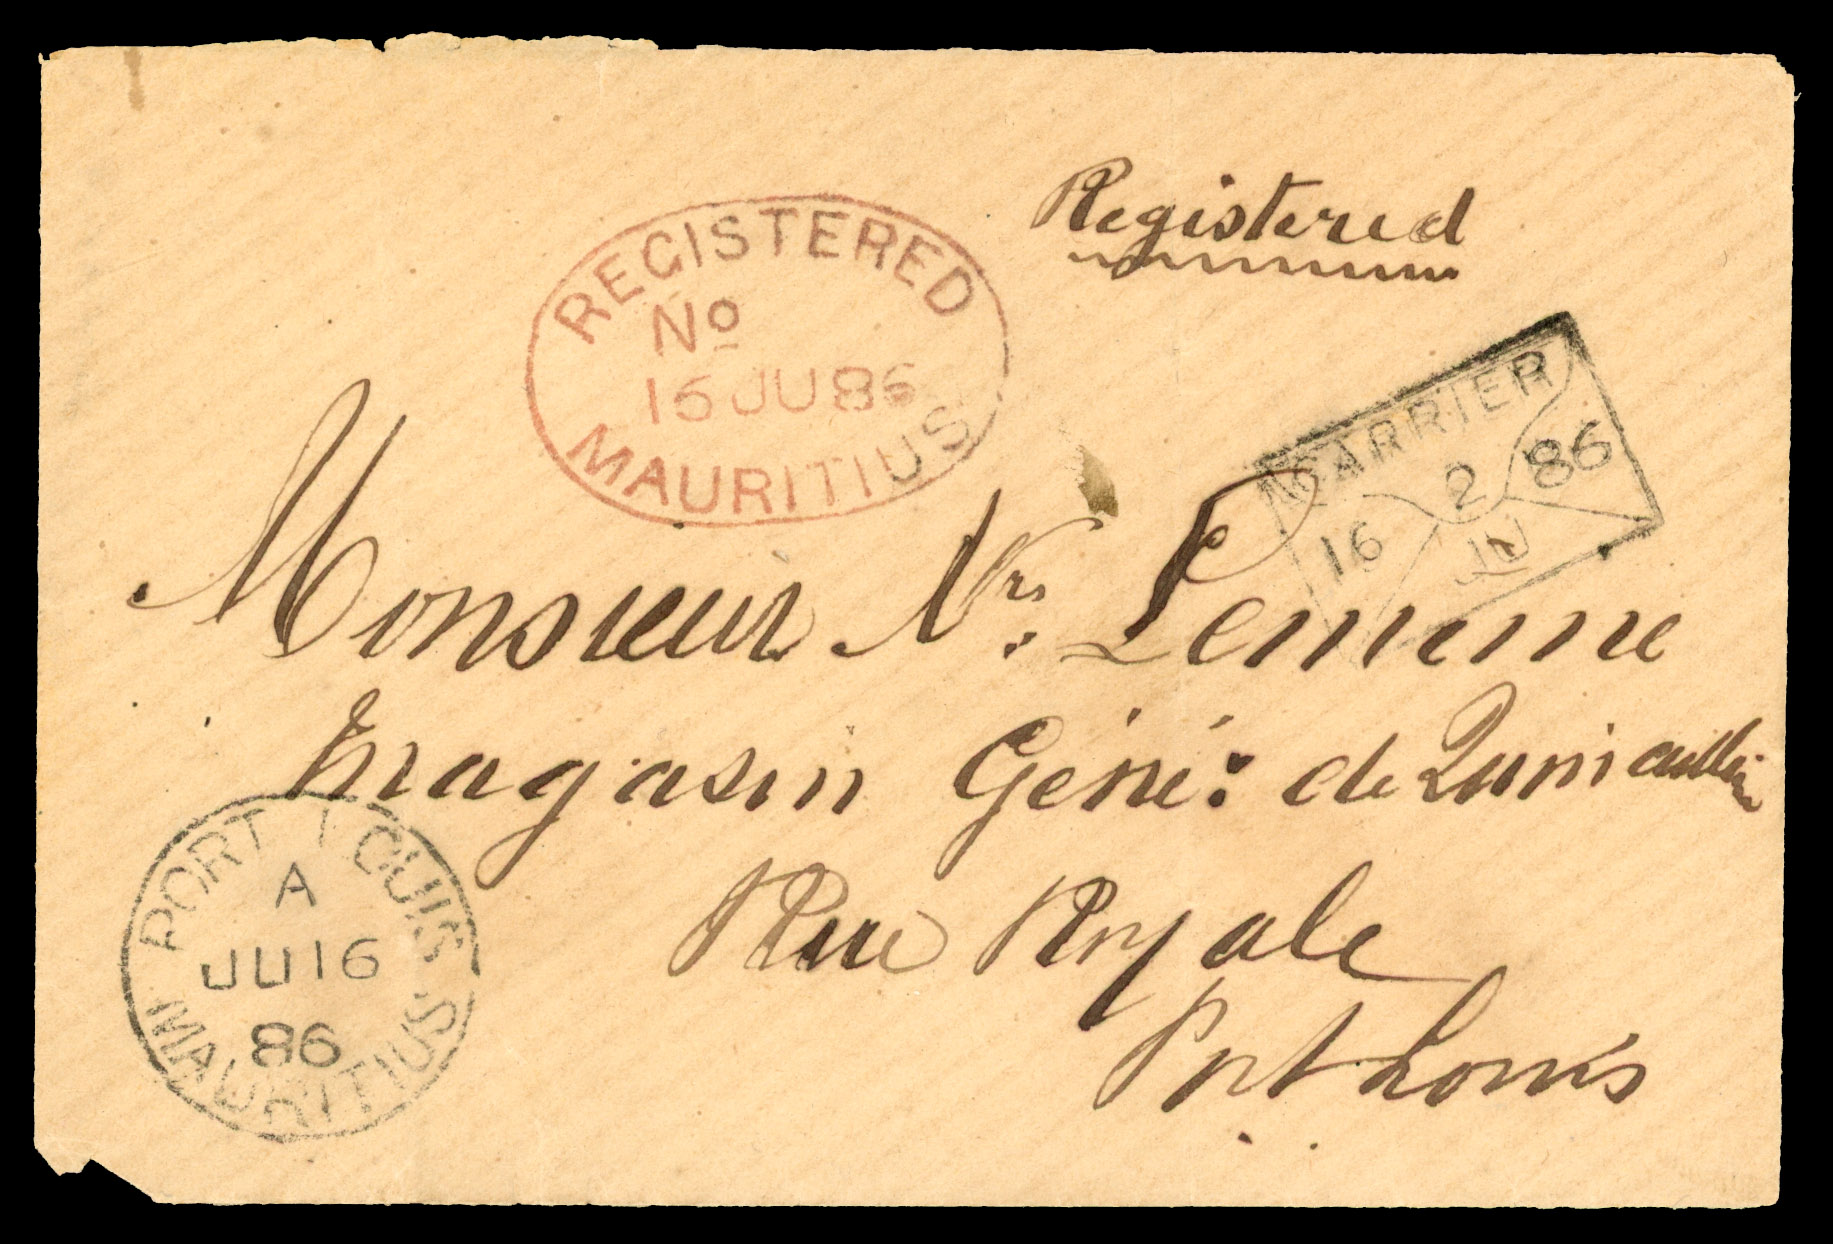 Registered
REGISTERED
No
16 JU 86
MAURITIUS
CARRIER
16 2 86
JU
Monsieur Nrs. Lemerme
Magasin Géné: de Quincaillerie
Rue Royale
Port Louis
PORT LOUIS
A
JU 16
86
MAURITIUS